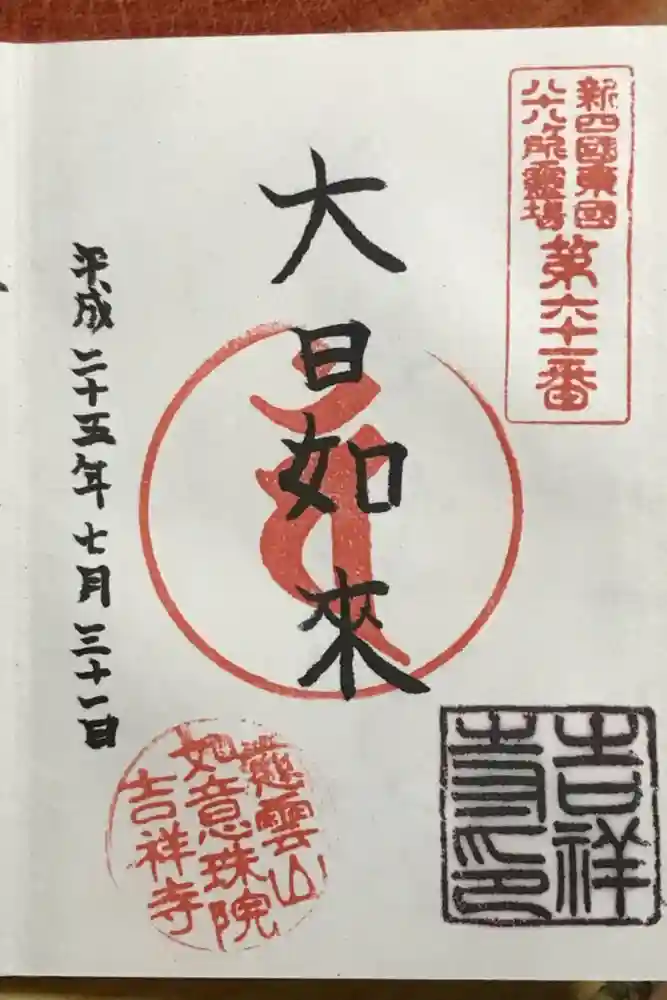 新四國東國
八十八ヶ所霊場
第六十二番
大日如來
平成二十五年七月三十一日
慈雲山
如意珠院
吉祥寺
吉祥
寺印